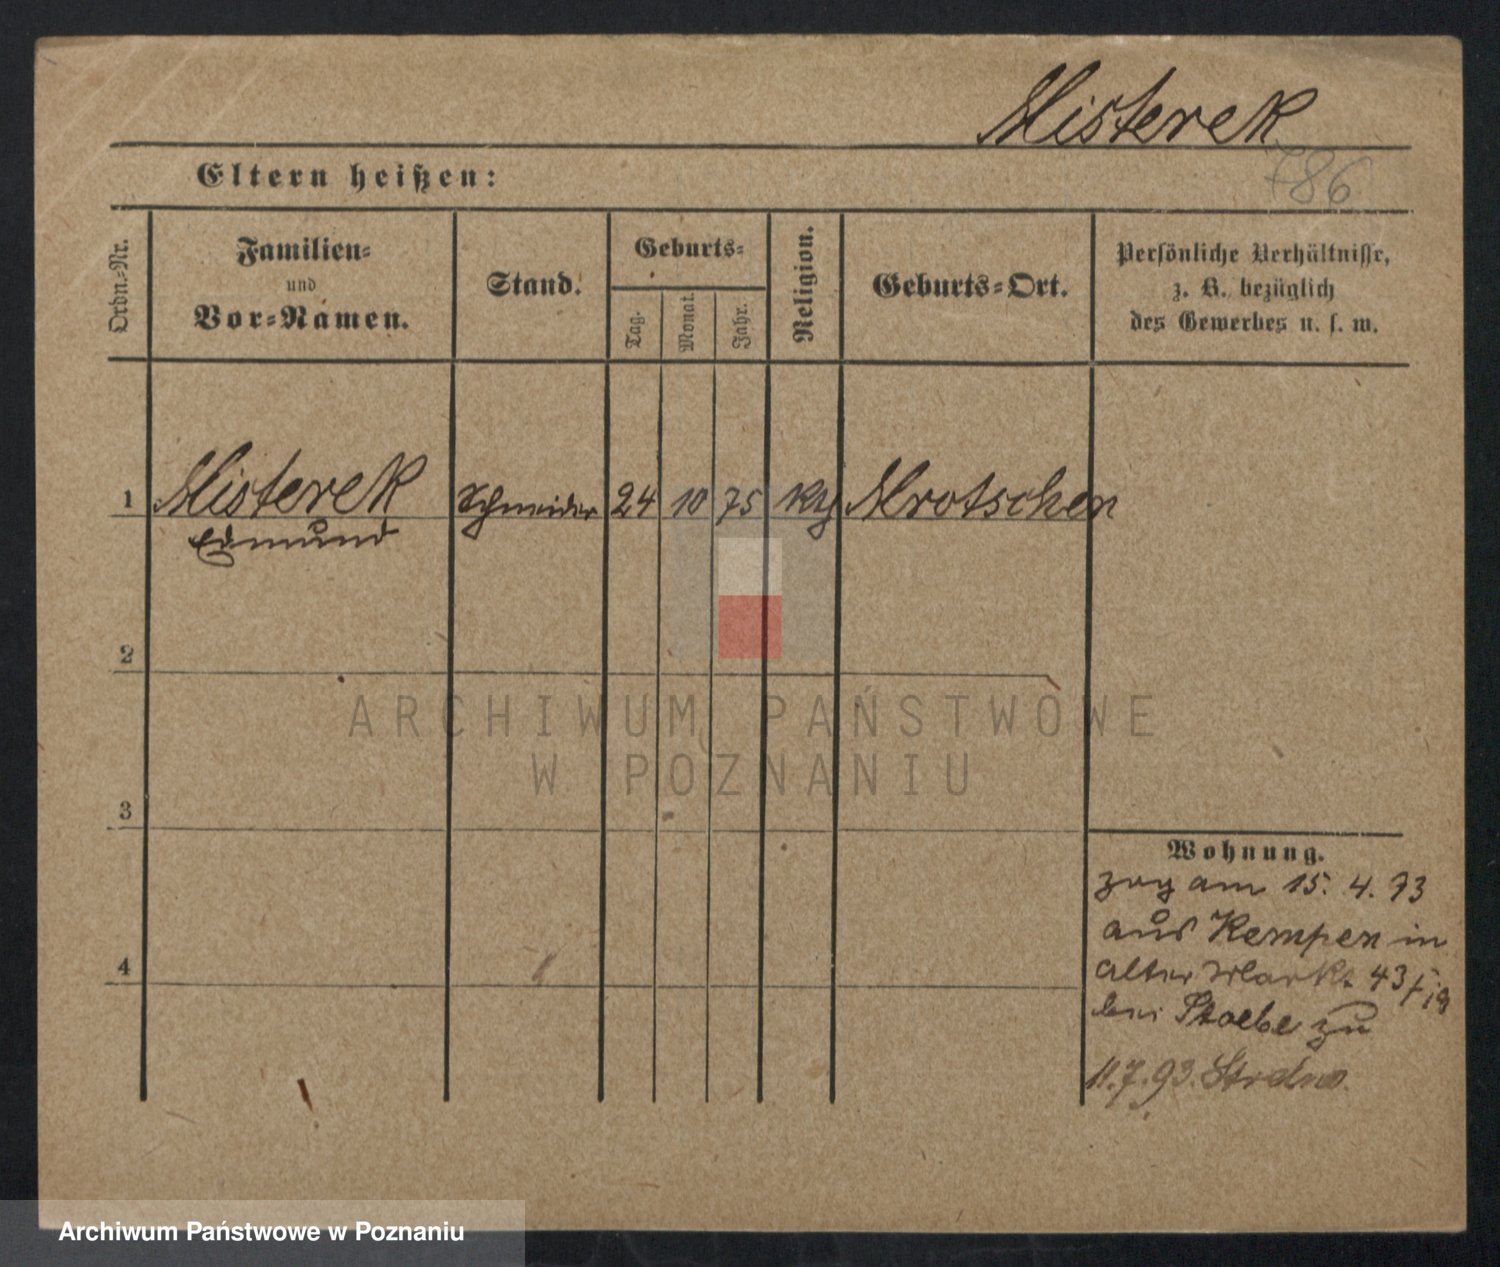 Misterek
786
Eltern heißen:
Ordn.-Nr.
Familien-
und
Vor-Namen.
Stand.
Geburts-
Tag.
Monat.
Jahr.
Religion.
Geburts-Ort.
Persönliche Verhältnisse,
z. B. bezüglich
des Gewerbes u. s. w.
1 Misterek Schneider 24 10 75 Mrotschen
Edmund
2
ARCHIWUM PAŃSTWOWE
W POZNANIU
3
Wohnung.
zog am 15. 4. 93
aus Kempen in
4
Alter Markt 43
bei zu
11.7.93.
Archiwum Państwowe w Poznaniu